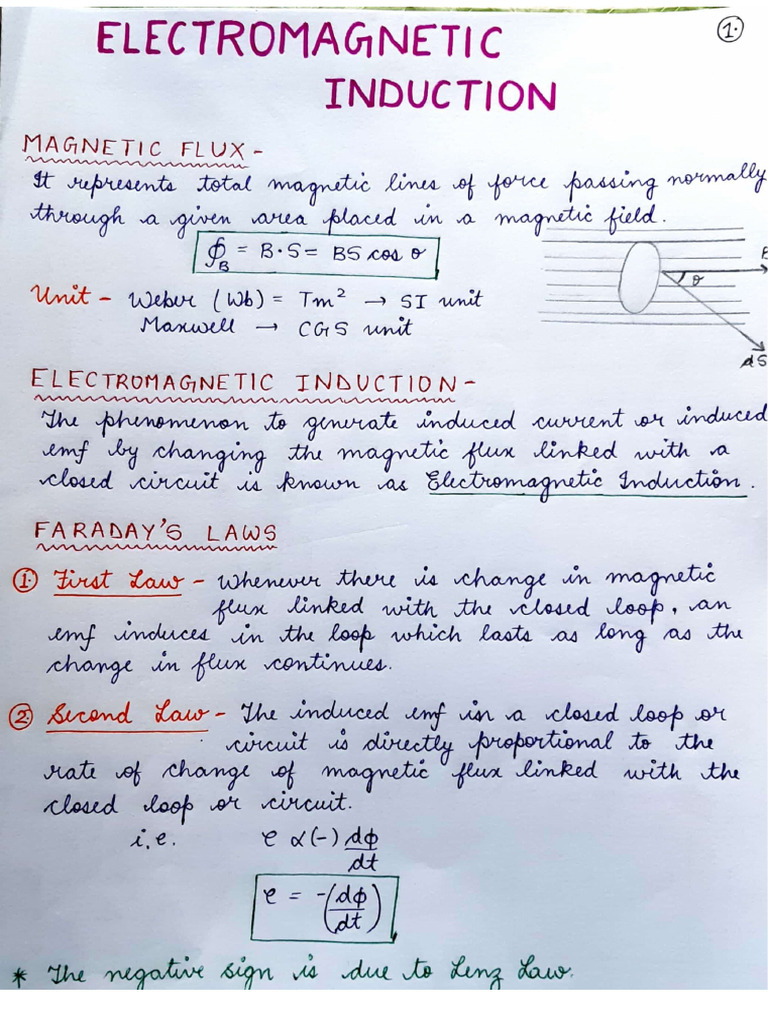 1.
ELECTROMAGNETIC
INDUCTION
MAGNETIC FLUX -
It represents total magnetic lines of force passing normally
through a given area placed in a magnetic field.
∮B = B·S = BS cos θ
Unit - Weber (Wb) = Tm² → SI unit
Maxwell → CGS unit
θ
dS
ELECTROMAGNETIC INDUCTION -
The phenomenon to generate induced current or induced
emf by changing the magnetic flux linked with a
closed circuit is known as Electromagnetic Induction.
FARADAY'S LAWS
1. First Law - Whenever there is change in magnetic
flux linked with the closed loop, an
emf induces in the loop which lasts as long as the
change in flux continues.
2. Second Law - The induced emf in a closed loop or
circuit is directly proportional to the
rate of change of magnetic flux linked with the
closed loop or circuit.
i.e. e ∝ (-) dϕ/dt
e = -(dϕ/dt)
* The negative sign is due to Lenz Law.